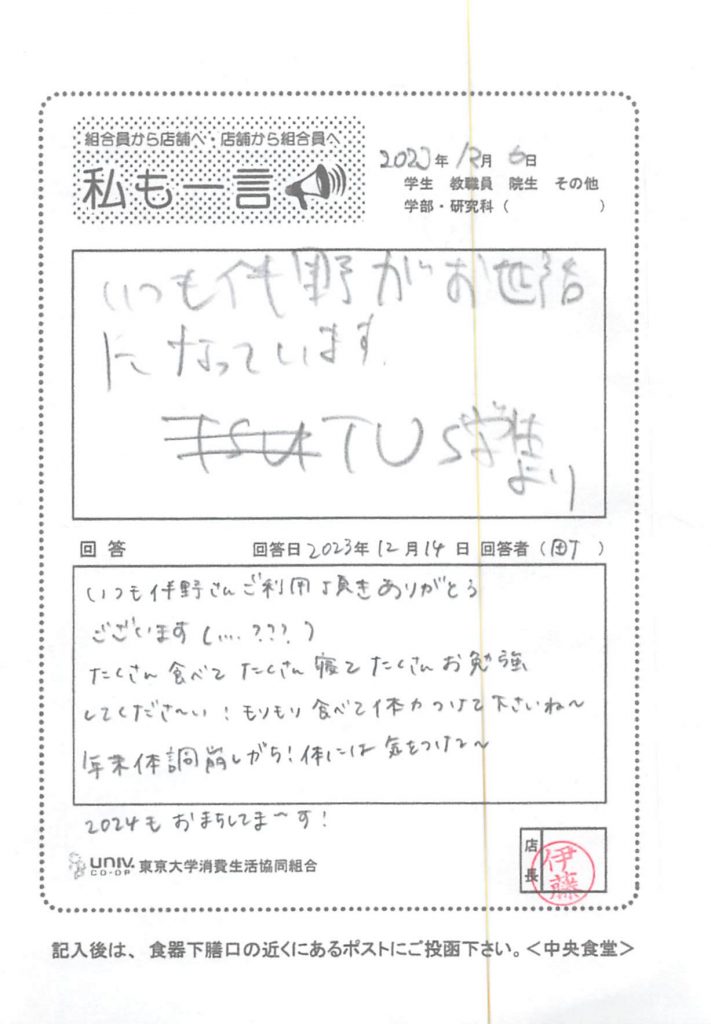 組合員から店舗へ・店舗から組合員へ
私も一言
2023年12月6日
学生 教職員 院生 その他
学部・研究科( )
いつも伴野がお世話
になっています。
TUS学生
より
回答 回答日2023年12月14日 回答者(町)
いつも伴野さんご利用頂きありがとう
ございます(….???)
たくさん食べてたくさん寝てたくさんお勉強
してくださ〜い!もりもり食べて体力つけて下さいね〜
年末体調崩しがち!体には気をつけて〜
2024もおまちしてま〜す!
UNIV. CO-OP 東京大学消費生活協同組合
店長 伊藤
記入後は、食器下膳口の近くにあるポストにご投函下さい。<中央食堂>